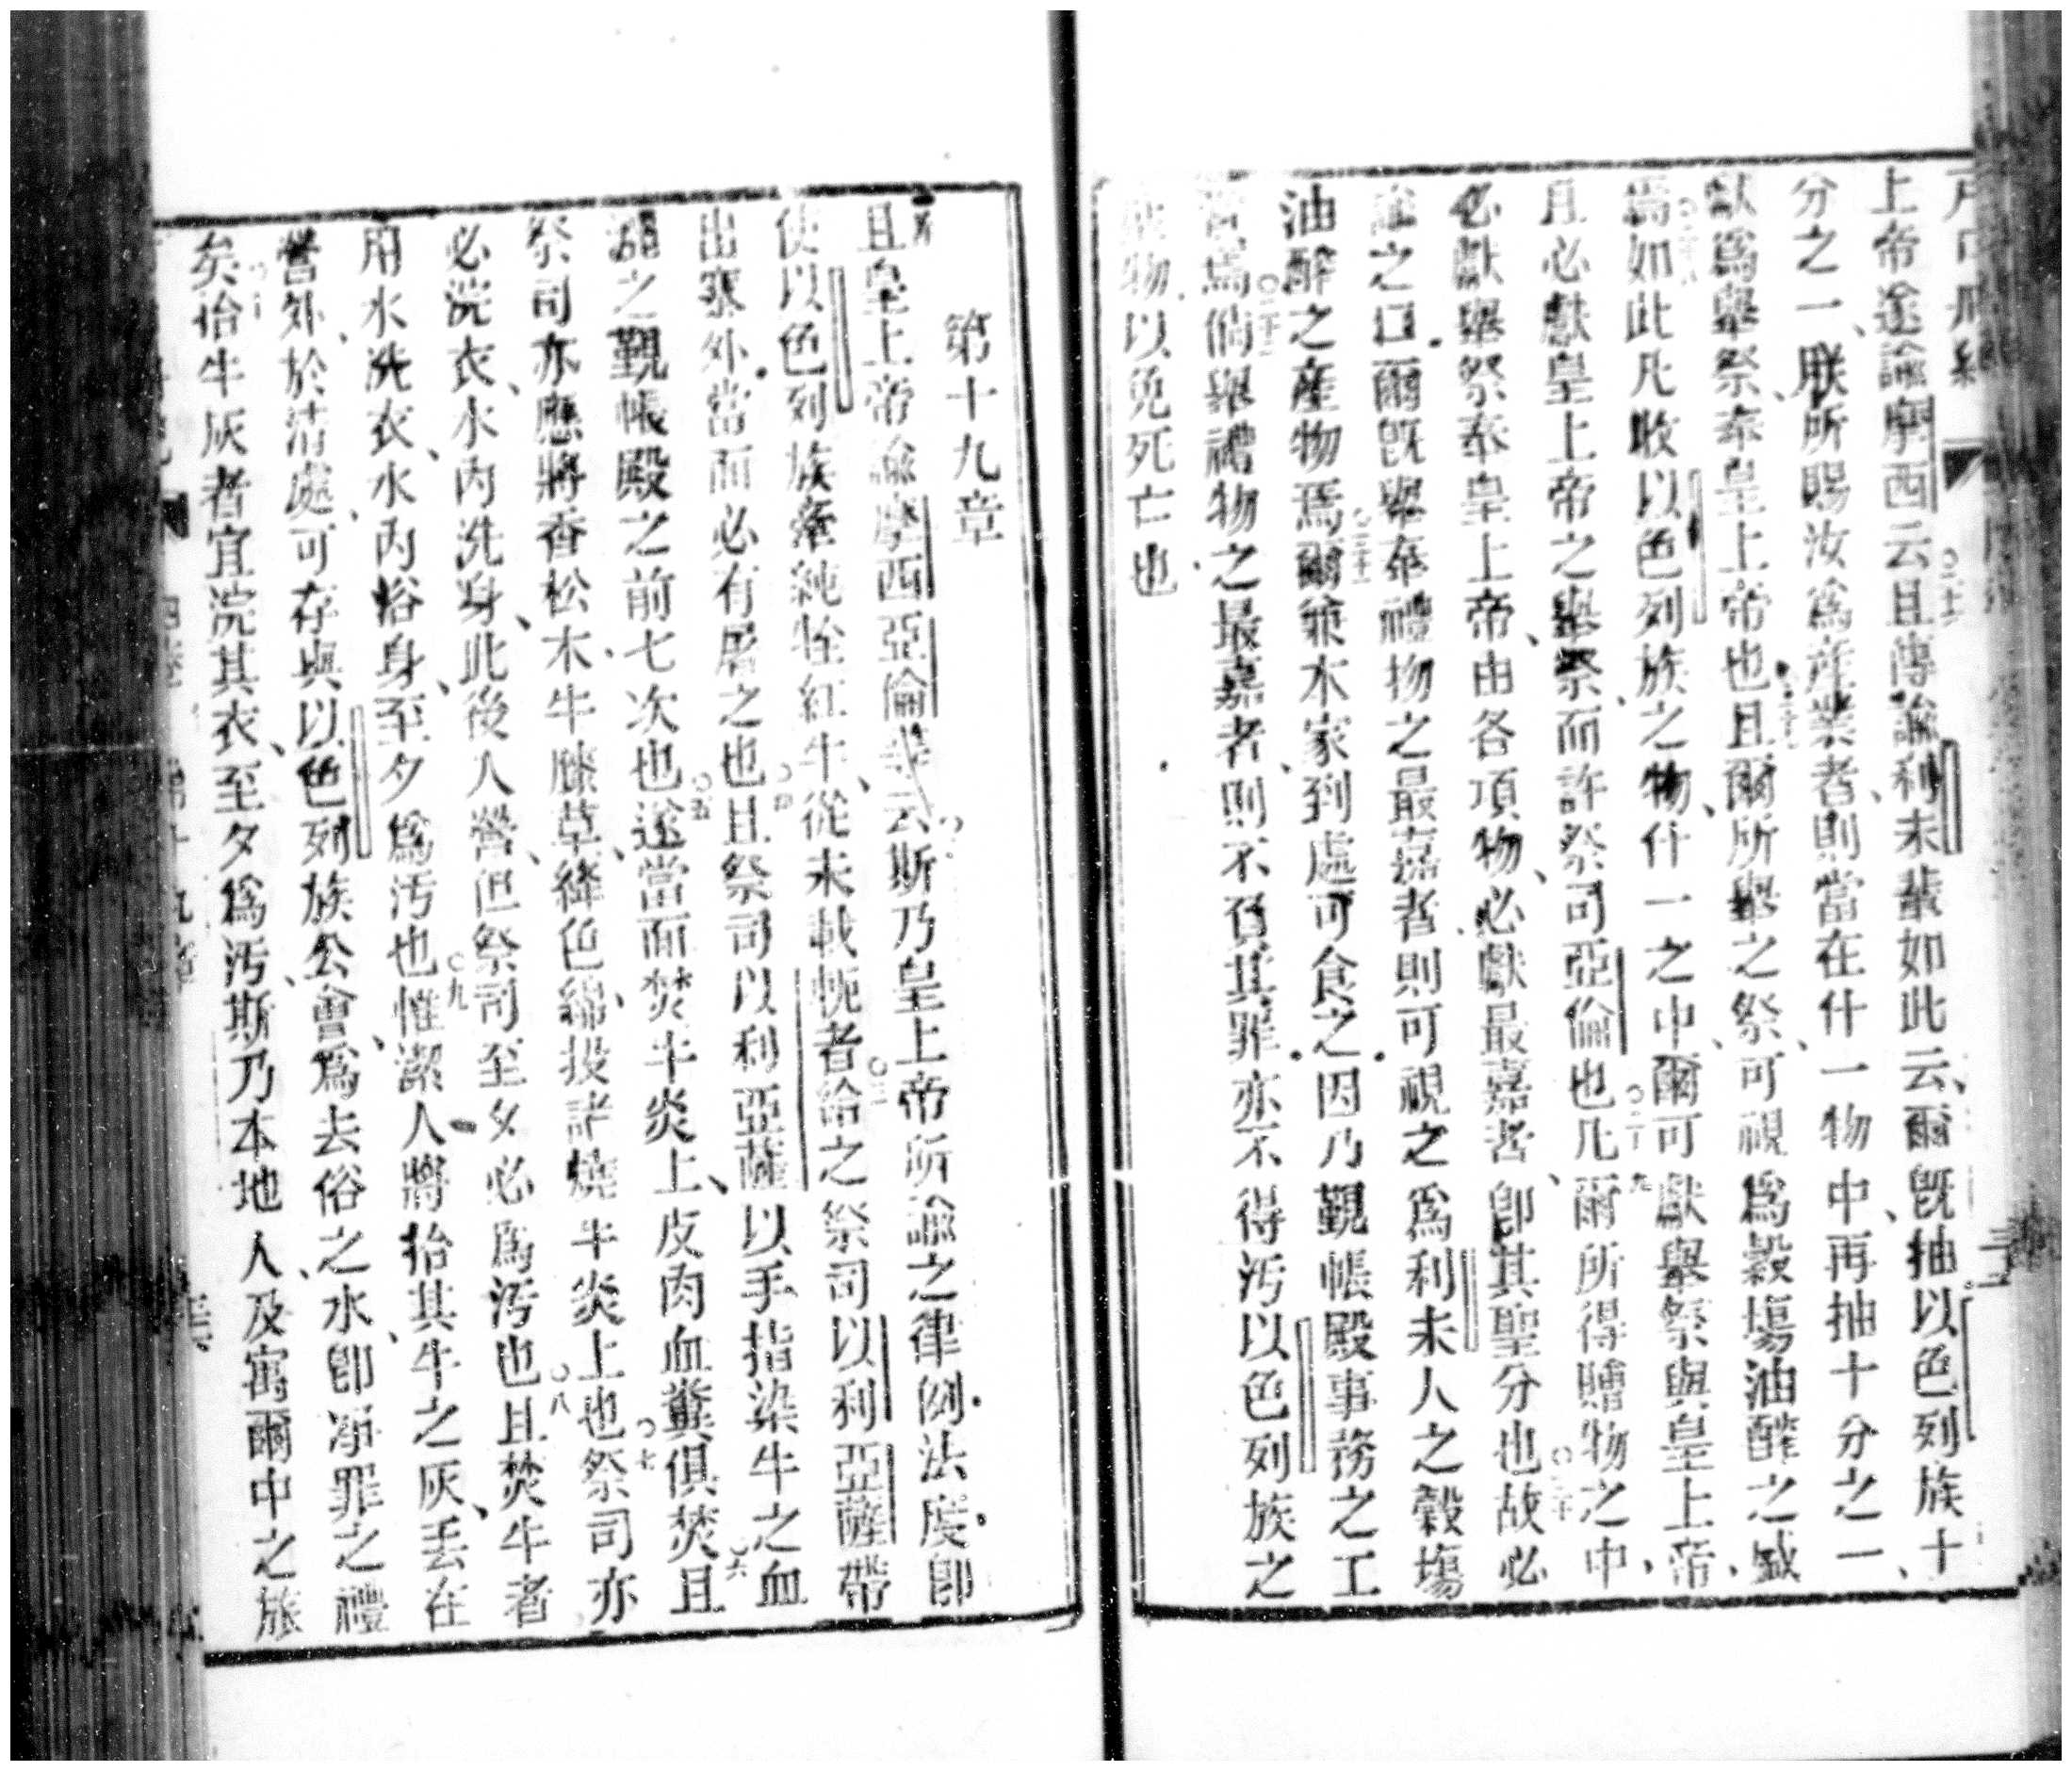 上帝途諭摩西云且傳諭利未輩如此云爾旣抽以色列族十
分之一朕所賜汝爲產業者則當在什一物中再抽十分之一
獻爲舉祭奉皇上帝也且爾所舉之祭可視爲穀塲油醡之盛
焉如此凡收以色列族之物什一之中爾可獻舉祭與皇上帝
且必獻皇上帝之舉祭而許祭司亞倫也凡爾所得贈物之中
必獻舉祭奉皇上帝由各項物必獻最嘉者卽其聖分也故必
諭之曰爾旣舉奉禮物之最嘉者則可視之爲利未人之穀塲
油醡之產物焉爾兼本家到處可食之因乃覲帳殿事務之工
焉倘舉禮物之最嘉者則不負其罪亦不得汚以色列族之
物以免死亡也
第十九章
且皇上帝諭摩西亞倫云斯乃皇上帝所諭之律例法度卽
使以色列族牽純牷紅牛從未載軛者給之祭司以利亞薩帶
出寨外當面必有屠之也且祭司以利亞薩以手指染牛之血
灑之覲帳殿之前七次也遂當面焚牛炎上皮肉血糞俱焚且
祭司亦應將香松木牛膝草絳色綿投諸燒牛炎上也祭司亦
必浣衣水內洗身此後入營但祭司至夕必爲汚也且焚牛者
用水洗衣水內浴身至夕爲汚也惟潔人將抬其牛之灰丟在
營外於清處可存與以色列族公會爲去俗之水卽凈罪之禮
矣抬牛灰者宜浣其衣至夕爲汚斯乃本地人及寓爾中之旅